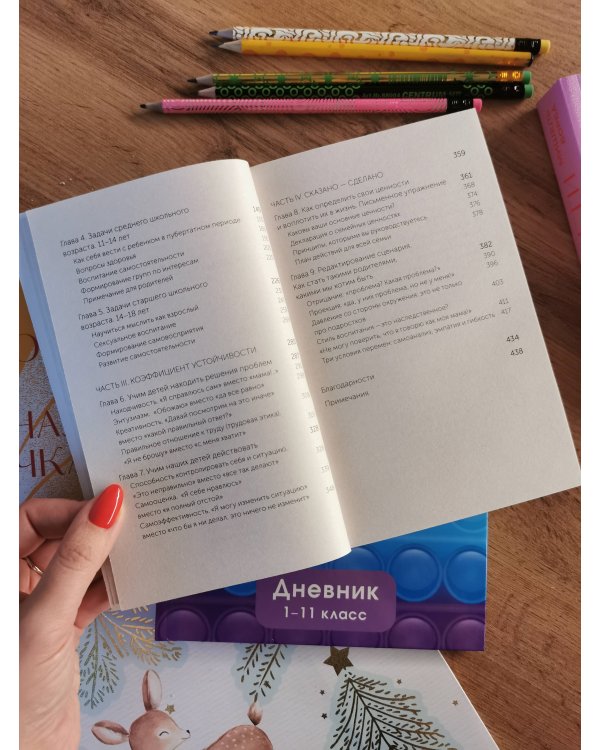 CENTRUM
Глава 4. Задачи среднего школьного
возраста. 11–14 лет
Как себя вести с ребенком в пубертатном периоде
Вопросы здоровья
Воспитание самостоятельности
Формирование групп по интересам
Примечание для родителей
Глава 5. Задачи старшего школьного
возраста. 14–18 лет
Научиться мыслить как взрослый
Сексуальное воспитание
Формирование самовосприятия
Развитие самостоятельности
ЧАСТЬ III. КОЭФФИЦИЕНТ УСТОЙЧИВОСТИ
Глава 6. Учим детей находить решения проблем
Находчивость. «Я справлюсь сам» вместо «мама!..»
Энтузиазм. «Обожаю» вместо «да все равно»
Креативность. «Давай посмотрим на это иначе»
вместо «какой правильный ответ?»
Правильное отношение к труду (трудовая этика).
«Я не брошу» вместо «с меня хватит»
Глава 7. Учим наших детей действовать
Способность контролировать себя и ситуацию.
«Это неправильно» вместо «все так делают»
Самооценка. «Я себе нравлюсь»
вместо «я полный отстой»
Самоэффективность. «Я могу изменить ситуацию»
вместо «что бы я ни делал, это ничего не изменит»
ЧАСТЬ IV. СКАЗАНО — СДЕЛАНО 359
Глава 8. Как определить свои ценности 361
и воплотить их в жизнь. Письменное упражнение 368
Каковы ваши основные ценности? 374
Декларация о семейных ценностях 376
Принципы, которыми вы руководствуетесь 378
План действий для всей семьи
Глава 9. Редактирование сценария. 382
Как стать такими родителями, 390
какими мы хотим быть 396
Отрицание. «Проблема? Какая проблема?»
Проекция. «Да, у них проблема, но не у меня!» 403
Давление со стороны окружения: это не только
про подростков 411
Стиль воспитания — это наследственное? 417
«Не могу поверить, что я говорю как моя мама!»
Три условия перемен: самоанализ, эмпатия и гибкость
434
438
Благодарности
Примечания
Дневник
1–11 класс